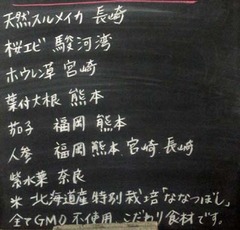 天然スルメイカ 長崎
桜エビ 駿河湾
ホウレン草 宮崎
葉付大根 熊本
茄子 福岡 熊本
人参 福岡 熊本 宮崎 長崎
紫水菜 奈良
米 北海道産特別栽培「ななつぼし」
全てGMO不使用 こだわり食材です。